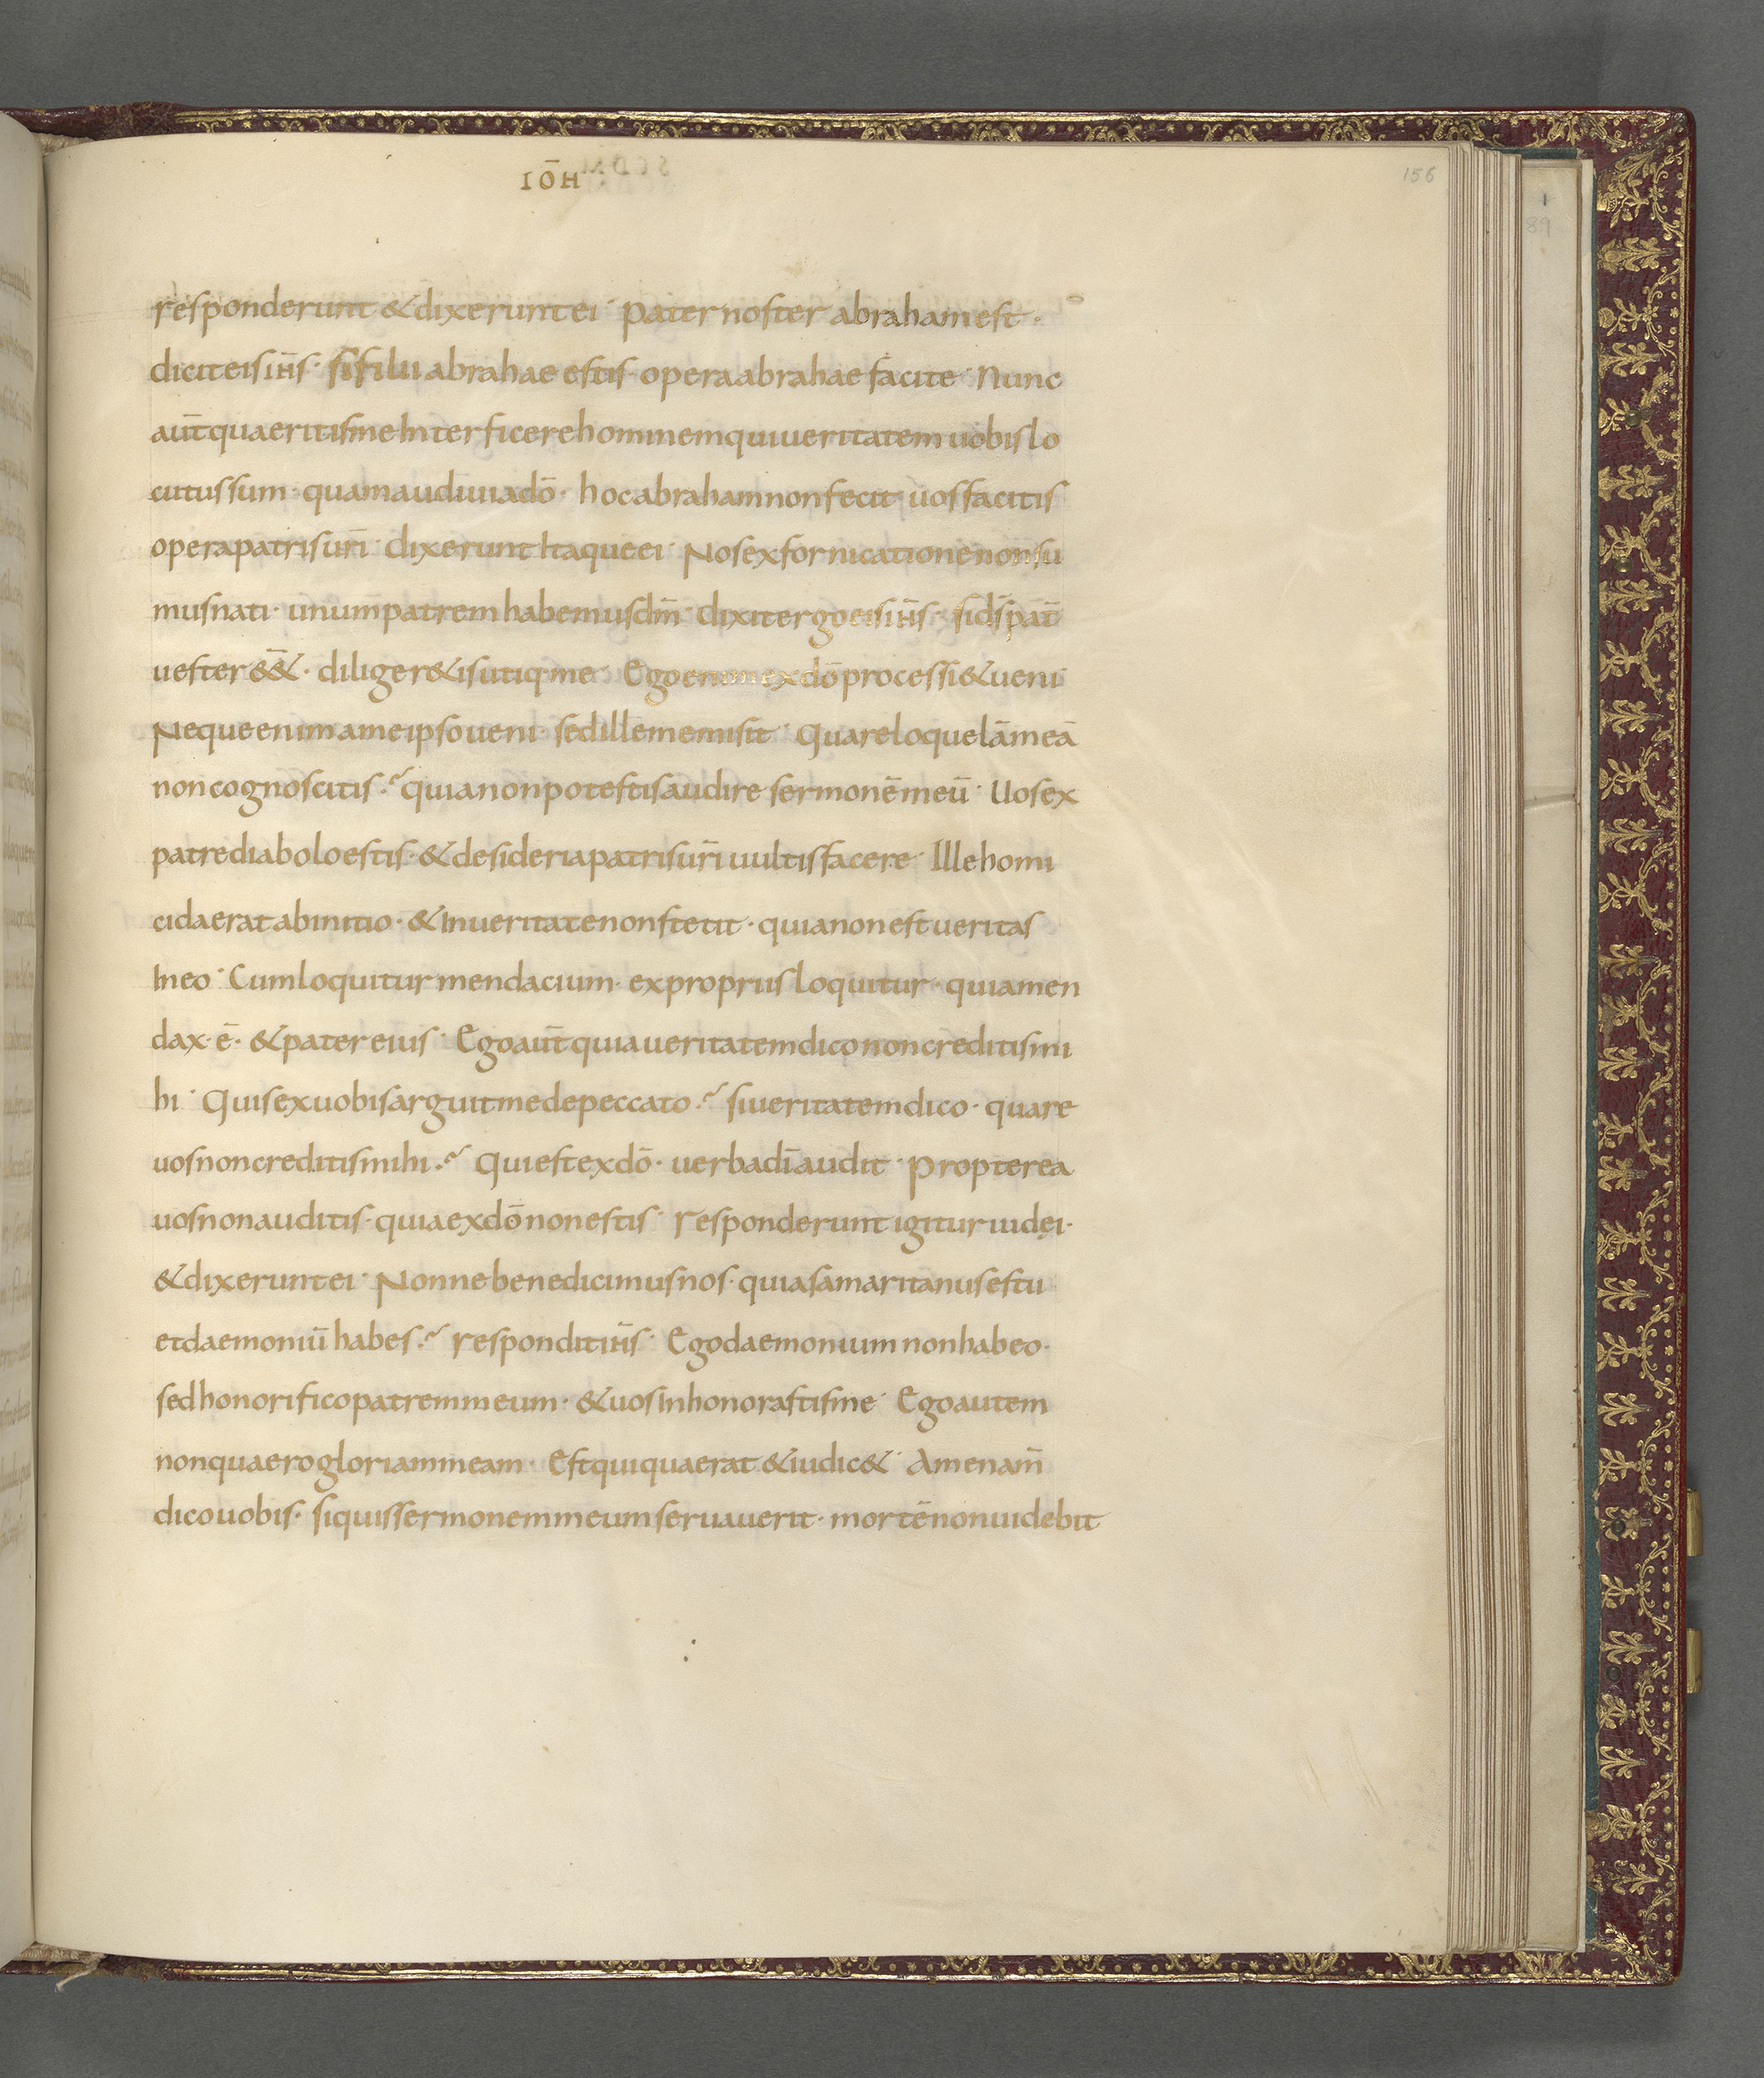 IOH̄
156
1
89
responderunt & dixerunt ei · Pater noster abraham est ·
dicit eis ih̄s · si filii abrahae estis · opera abrahae facite · Nunc
aut̄ quaeritis me Interficere hominem qui ueritatem uobis lo
cutus sum · quam audiui a dō · hoc abraham non fecit · uos facitis
opera patris ur̄i · dixerunt Itaque ei · Nos ex fornicatione non su
mus nati · unum patrem habemus dm̄ · dixit ergo eis ih̄s · si ds̄ pat̄
uester &̄& · diliger&is utiq me · Ego enim ex dō processi & ueni
Neque enim a me ipso ueni · sed ille me misit · Quare loquelā meā
non cognoscitis ? quia non potestis audire sermonē meū · Uos ex
patre diabolo estis · & desideria patris ur̄i uultis facere · Ille homi
cida erat ab initio · & In ueritate non stetit · quia non est ueritas
In eo · Cum loquitur mendacium · ex propriis loquitur · quia men
dax · ē · & pater eius · Ego aut̄ quia ueritatem dico non creditis mi
hi · Quis ex uobis arguit me de peccato ? si ueritatem dico · quare
uos non creditis mihi ? Qui est ex dō · uerba dī audit · Propterea
uos non auditis · quia ex dō non estis · responderunt igitur iudęi ·
& dixerunt ei · Nonne bene dicimus nos · quia samaritanus es tu
et daemoniū habes ? respondit ih̄s · Ego daemonium non habeo ·
sed honorifico patrem meum · & uos Inhonorastis me · Ego autem
non quaero gloriam meam · Est qui quaerat & iudic& · Amen am̄
dico uobis · si quis sermonem meum seruauerit · mortē non uidebit